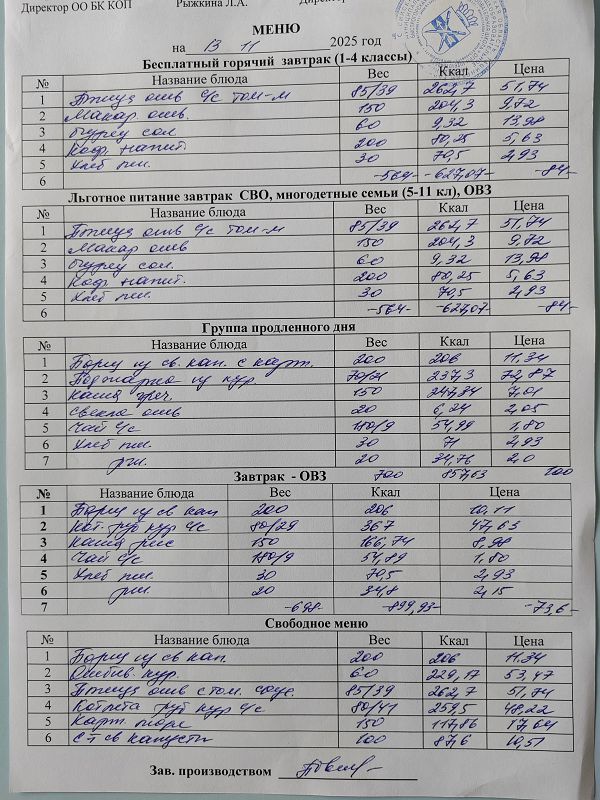 Директор ОО БК КОП Рыжкина Л.А. Директор
МЕНЮ
на 13 11 2025 год
Бесплатный горячий завтрак (1-4 классы)
№ Название блюда Вес Ккал Цена
1 Птица отв с/с том-м 85/39 262,7 51,74
2 Макар. отв. 150 204,3 9,72
3 Огурец сол 60 9,32 13,98
4 Коф. напит. 200 80,25 5,63
5 Хлеб пш. 30 70,5 2,93
6 -564- -627,07- -84-
Льготное питание завтрак СВО, многодетные семьи (5-11 кл), ОВЗ
№ Название блюда Вес Ккал Цена
1 Птица отв с/с том-м 85/39 262,7 51,74
2 Макар отв 150 204,3 9,72
3 Огурец сол. 60 9,32 13,98
4 Коф. напит. 200 80,25 5,63
5 Хлеб пш. 30 70,5 2,93
6 -564- -627,07- -84-
Группа продленного дня
№ Название блюда Вес Ккал Цена
1 Борщ из св. кап. с карт. 200 206 11,34
2 Поджарка из кур. 70/21 237,3 72,87
3 Каша греч. 150 247,84 7,01
4 Свекла отв 20 6,24 2,05
5 Чай с/с 180/9 54,99 1,80
6 Хлеб пш. 30 71 2,93
7 рж. 20 34,76 2,0
Завтрак - ОВЗ 700 857,63 100
№ Название блюда Вес Ккал Цена
1 Борщ из св кап 200 206 10,11
2 Кот. руб кур с/с 80/29 367 47,63
3 Каша рис 150 166,74 8,98
4 Чай с/с 180/9 54,89 1,80
5 Хлеб пш. 30 70,5 2,93
6 рж. 20 34,8 2,15
7 -698- -899,93- -73,6-
Свободное меню
№ Название блюда Вес Ккал Цена
1 Борщ из св кап. 200 206 11.34
2 Отбив. кур. 60 229,17 53,47
3 Птица отв с том. соус. 85/39 262,7 51,74
4 Котлета руб кур с/с 80/41 259,5 48,22
5 Карт. пюре 150 117,86 17,64
6 С-т св капусты 100 87,6 10,51
Зав. производством